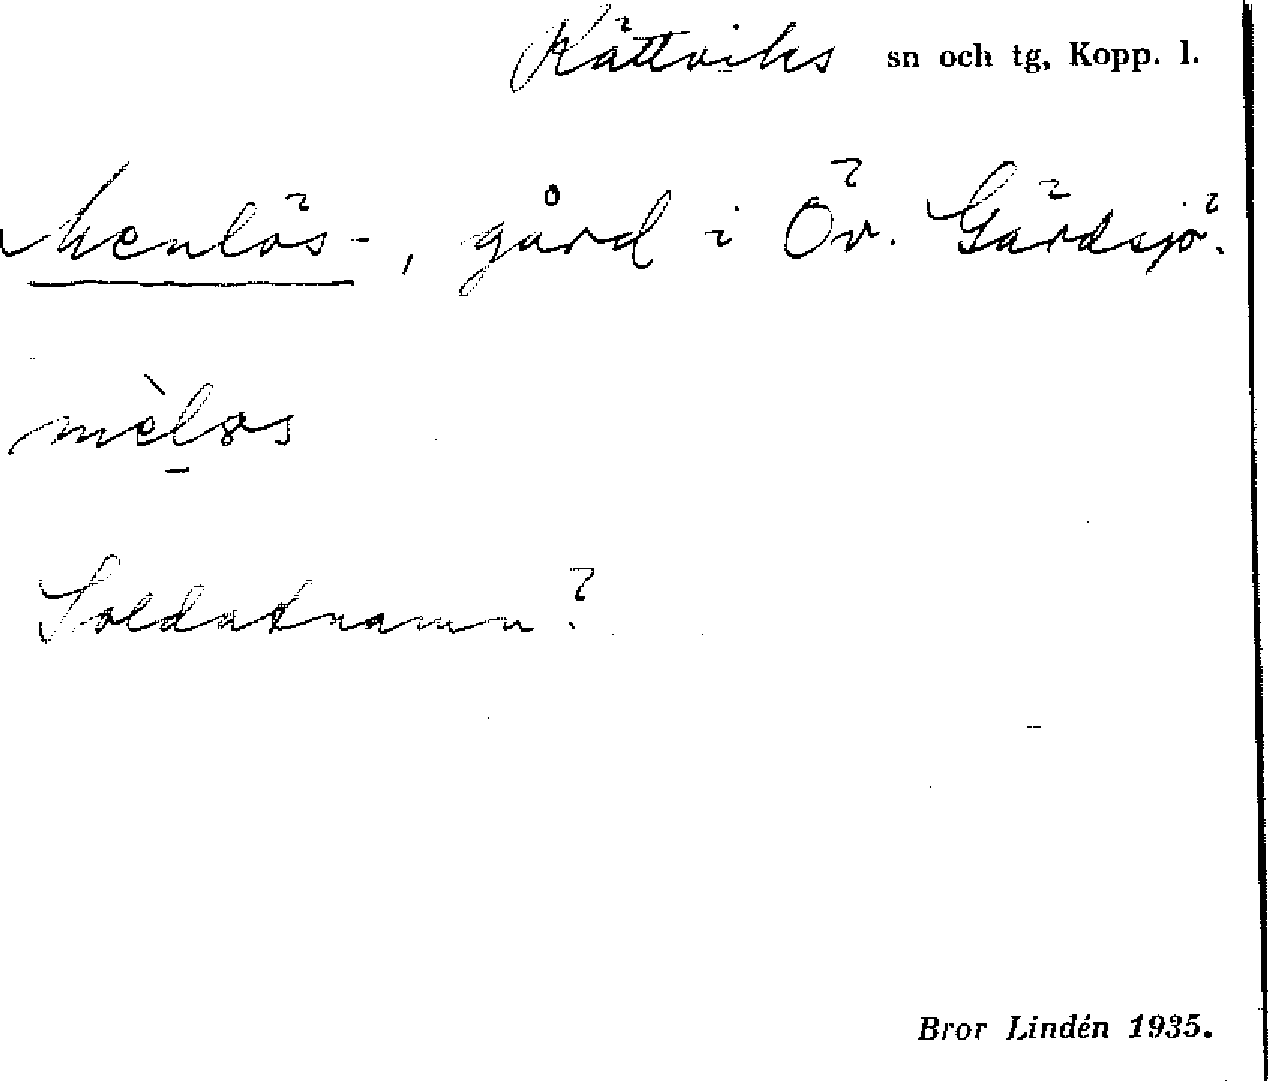 Rättviks sn och tg, Kopp. l.
Menlös-, gård i Öv. Gärdsjö.
mèløs
Soldatnamn?
Bror Lindén 1935.